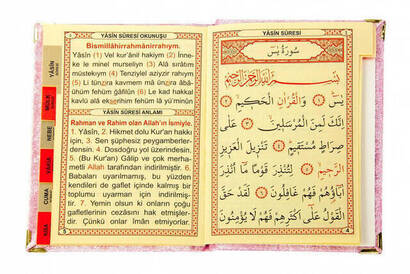 YÂSÎN SÛRESİ OKUNUŞU
Bismillâhirrahmânirrahıym.
Yâsîn (1) Vel kur'ânil hakiym (2) İnne-
ke le minel murseliyn (3) Alâ sırâtım
müstekıym (4) Tenziylel aziyzir rahıym
(5) Li tünzira kavmem mâ ünzira âbâ-
ühüm fehüm ğâfilûn (6) Le kad hakkal
kavlü alâ ekserihim fehüm lâ yü'minûn
YÂSÎN SÛRESİ ANLAMI
Rahman ve Rahim olan Allah'ın İsmiyle.
1. Yâsîn, 2. Hikmet dolu Kur'an hakkı
için, 3. Sen şüphesiz peygamberler-
densin. 4. Dosdoğru yol üzerindesin.
5. (Bu Kur'an) Gâlip ve çok merha-
metli Allah tarafından indirilmiştir. 6.
Babaları uyarılmamış, bu yüzden
kendileri de gaflet içinde kalmış bir
toplumu uyarman için indirilmiş-
tir. 7. Yemin olsun ki onların çoğu
gafletlerinin cezâsını hak etmişler-
dir. Çünkü onlar îman etmiyorlar.
5
YÂSÎN
MÜLK
NEBE
VAKIA
CUMA
YÂSÎN SÛRESİ
سُورَةُ يٰسٓ
بِسْمِ اللّٰهِ الرَّحْمٰنِ الرَّحِيمِ
يٰسٓ ۝ وَالْقُرْاٰنِ الْحَكِيمِ ۝
اِنَّكَ لَمِنَ الْمُرْسَلِينَ ۝ عَلٰى
صِرَاطٍ مُسْتَقِيمٍ ۝ تَنْزِيلَ الْعَزِيزِ
الرَّحِيمِ ۝ لِتُنْذِرَ قَوْمًا مَٓا اُنْذِرَ
اٰبَٓاؤُ۬هُمْ فَهُمْ غَافِلُونَ ۝ لَقَدْ حَقَّ
الْقَوْلُ عَلٰٓى اَكْثَرِهِمْ فَهُمْ لَا يُؤْمِنُونَ
4